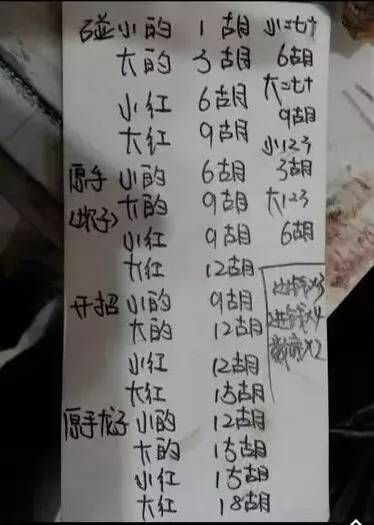 碰小的 1胡
大的 3胡
小红 6胡
大红 9胡
原手 小的 6胡
(坎子) 大的 9胡
小红 9胡
大红 12胡
开招 小的 9胡
大的 12胡
小红 12胡
大红 15胡
原手龙子 小的 12胡
大的 15胡
小红 15胡
大红 18胡
小二七十
6胡
大二七十
9胡
小123
3胡
大123
6胡
x3
x4
x2